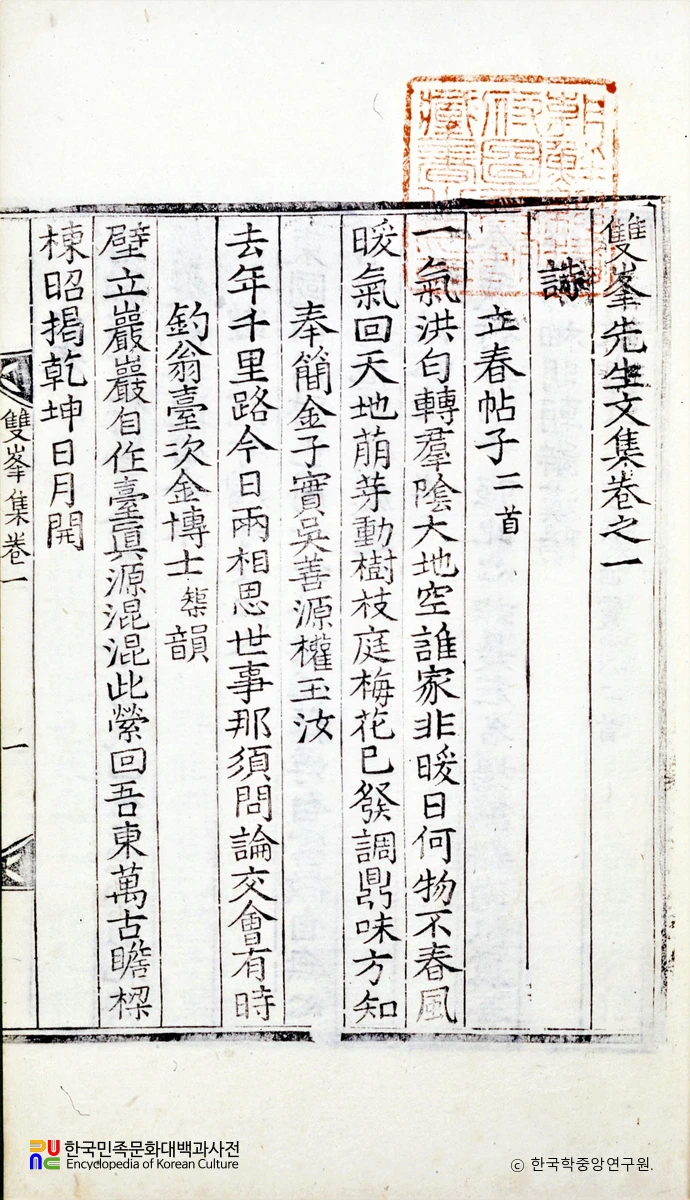 朝鮮總督
府圖書館
藏書之印
雙峯先生文集卷之一
詩
立春帖子 二首
一氣洪匀轉羣陰大地空誰家非暖日何物不春風
暖氣回天地萠芽動樹枝庭梅花已發調鼎味方知
奉簡金子實吳善源權玉汝
去年千里路今日兩相思世事那須問論交會有時
釣翁臺次金博士 韻
壁立巖巖自作臺眞源混混此縈回吾東萬古瞻樑
棟昭揭乾坤日月開
雙峯集卷一 一
한국민족문화대백과사전
Encyclopedia of Korean Culture
ⓒ 한국학중앙연구원.